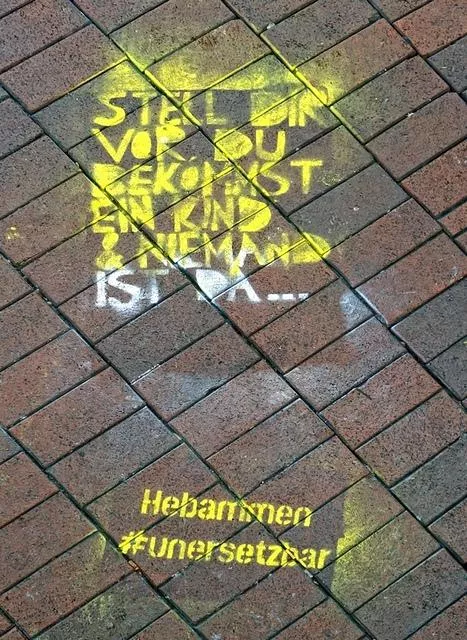 STELL DIR
VOR DU
BEKOMMST
EIN KIND
& NIEMAND
IST DA...
Hebammen
#unersetzbar